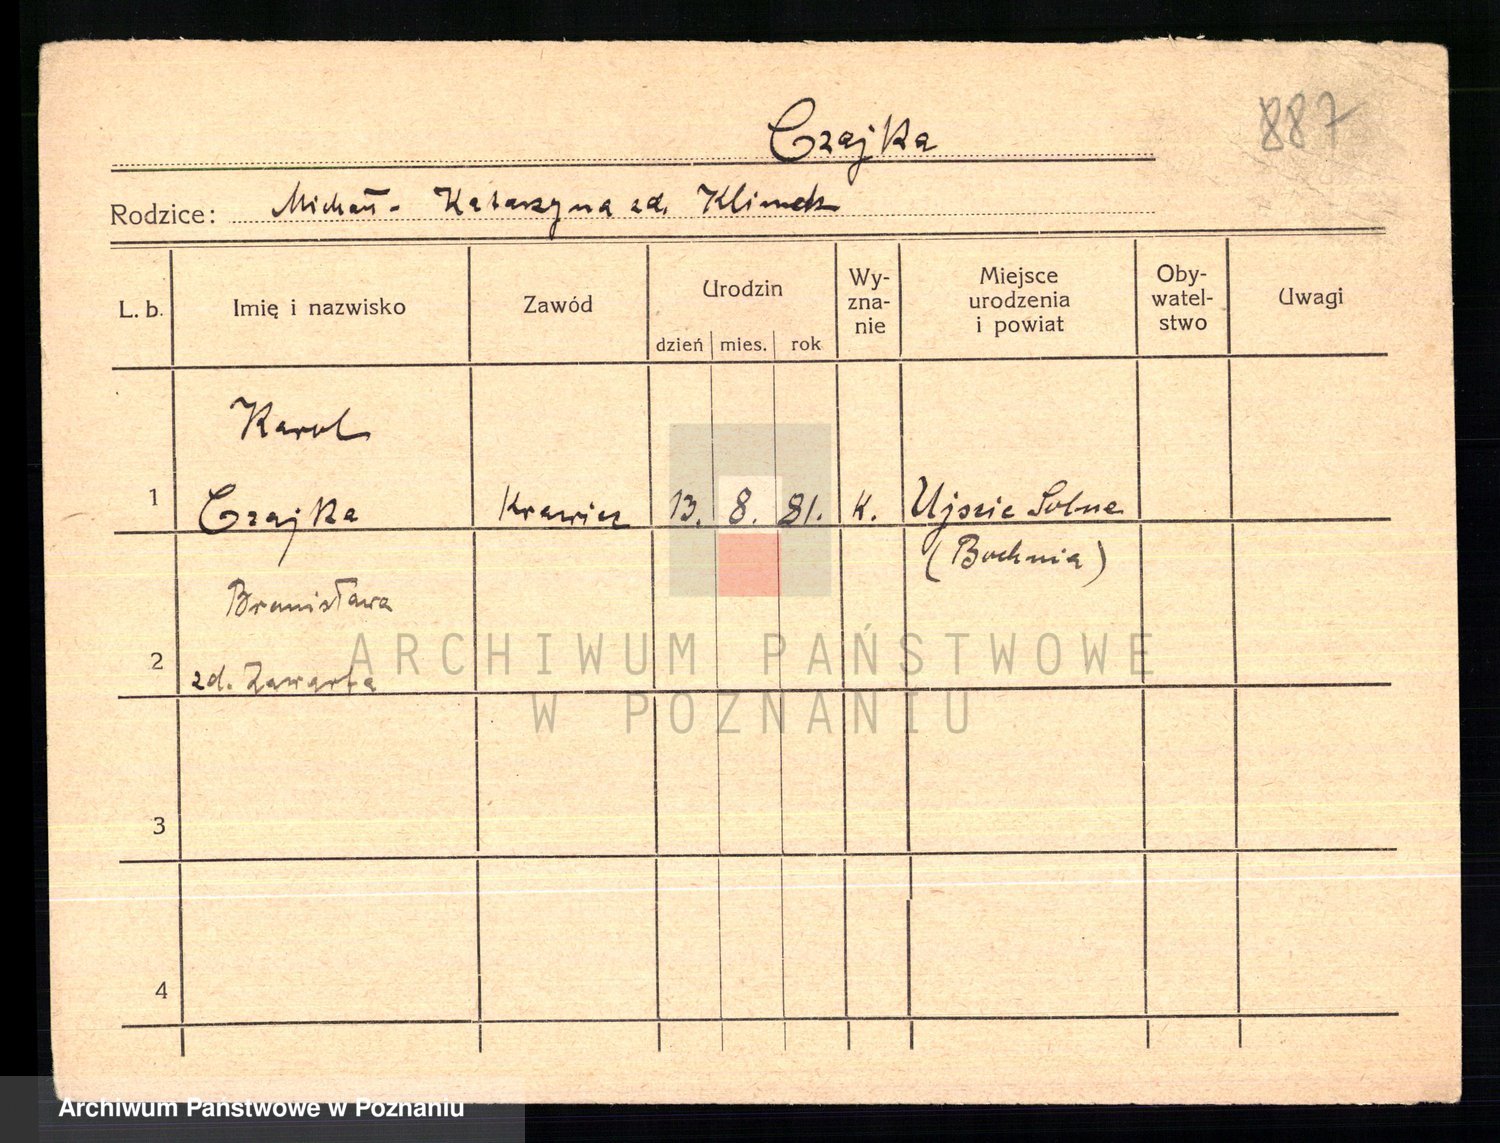 Czajka
887
Rodzice: Michał - Katarzyna zd. Klimek
L. b. Imię i nazwisko Zawód Urodzin dzień mies. rok Wy-zna-nie Miejsce urodzenia i powiat Oby-watel-stwo Uwagi
Karol
1 Czajka Krawiec 13. 8. 81. K. Ujście Solne
(Bochnia)
Bronisława
2 zd. Zawarta
ARCHIWUM PAŃSTWOWE
W POZNANIU
3
4
Archiwum Państwowe w Poznaniu